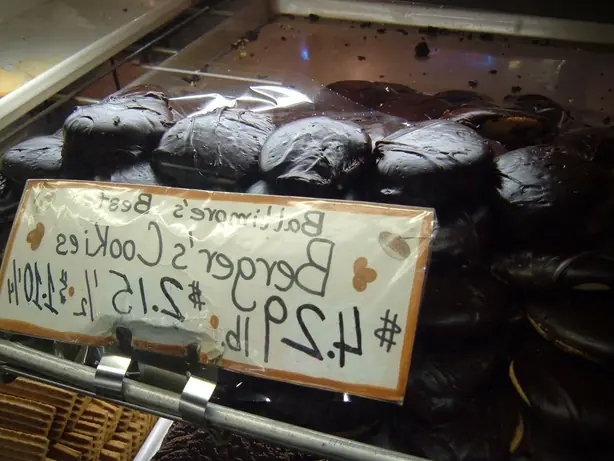 Baltimore's Best
Berger's Cookies
$4.29 lb. $2.15 1/2 $1.10 1/4